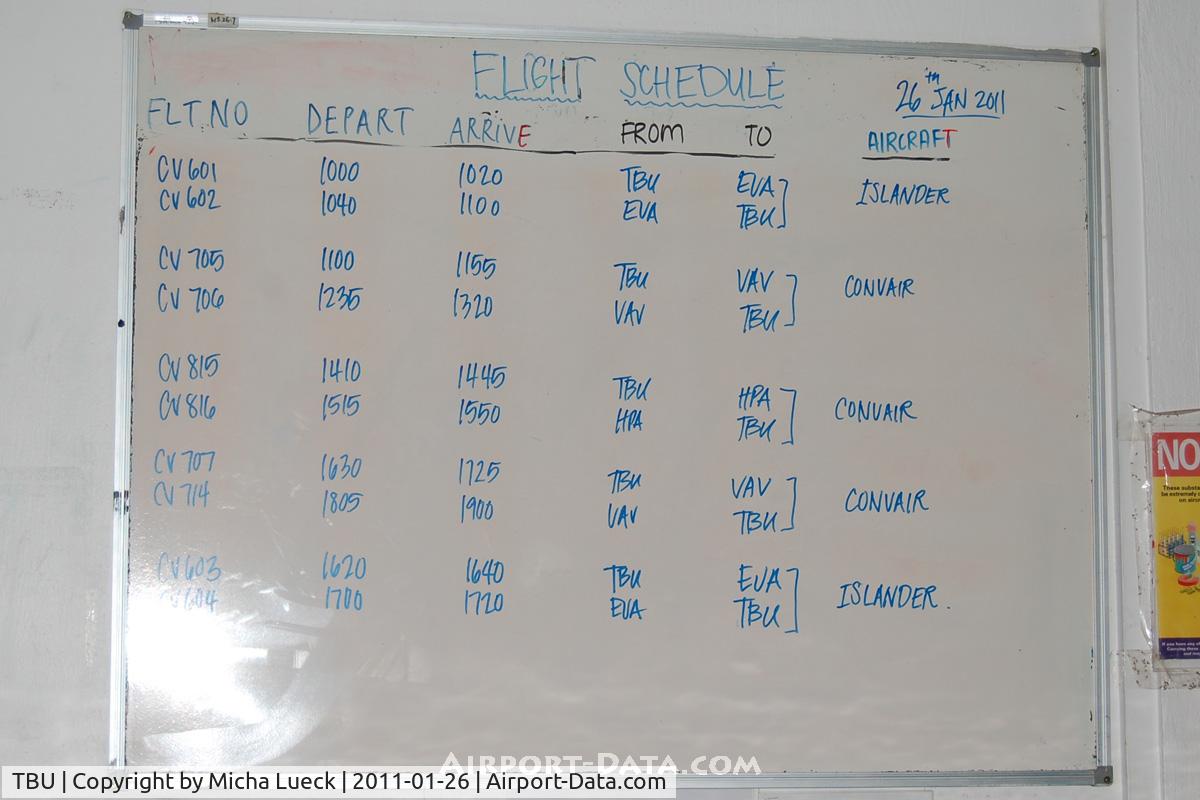 FLIGHT SCHEDULE
26th JAN 2011
FLT.NO DEPART ARRIVE FROM TO AIRCRAFT
CV 601 1000 1020 TBU EVA ISLANDER
CV 602 1040 1100 EVA TBU
CV 705 1100 1155 TBU VAV CONVAIR
CV 706 1235 1320 VAV TBU
CV 815 1410 1445 TBU HPA CONVAIR
CV 816 1515 1550 HPA TBU
CV 707 1630 1725 TBU VAV CONVAIR
CV 714 1805 1900 VAV TBU
CV 603 1620 1640 TBU EVA ISLANDER.
CV 604 1700 1720 EVA TBU
NO
These substa
be extremely
on airc
If you have any
Carrying these
Airport-Data.com
TBU | Copyright by Micha Lueck | 2011-01-26 | Airport-Data.com